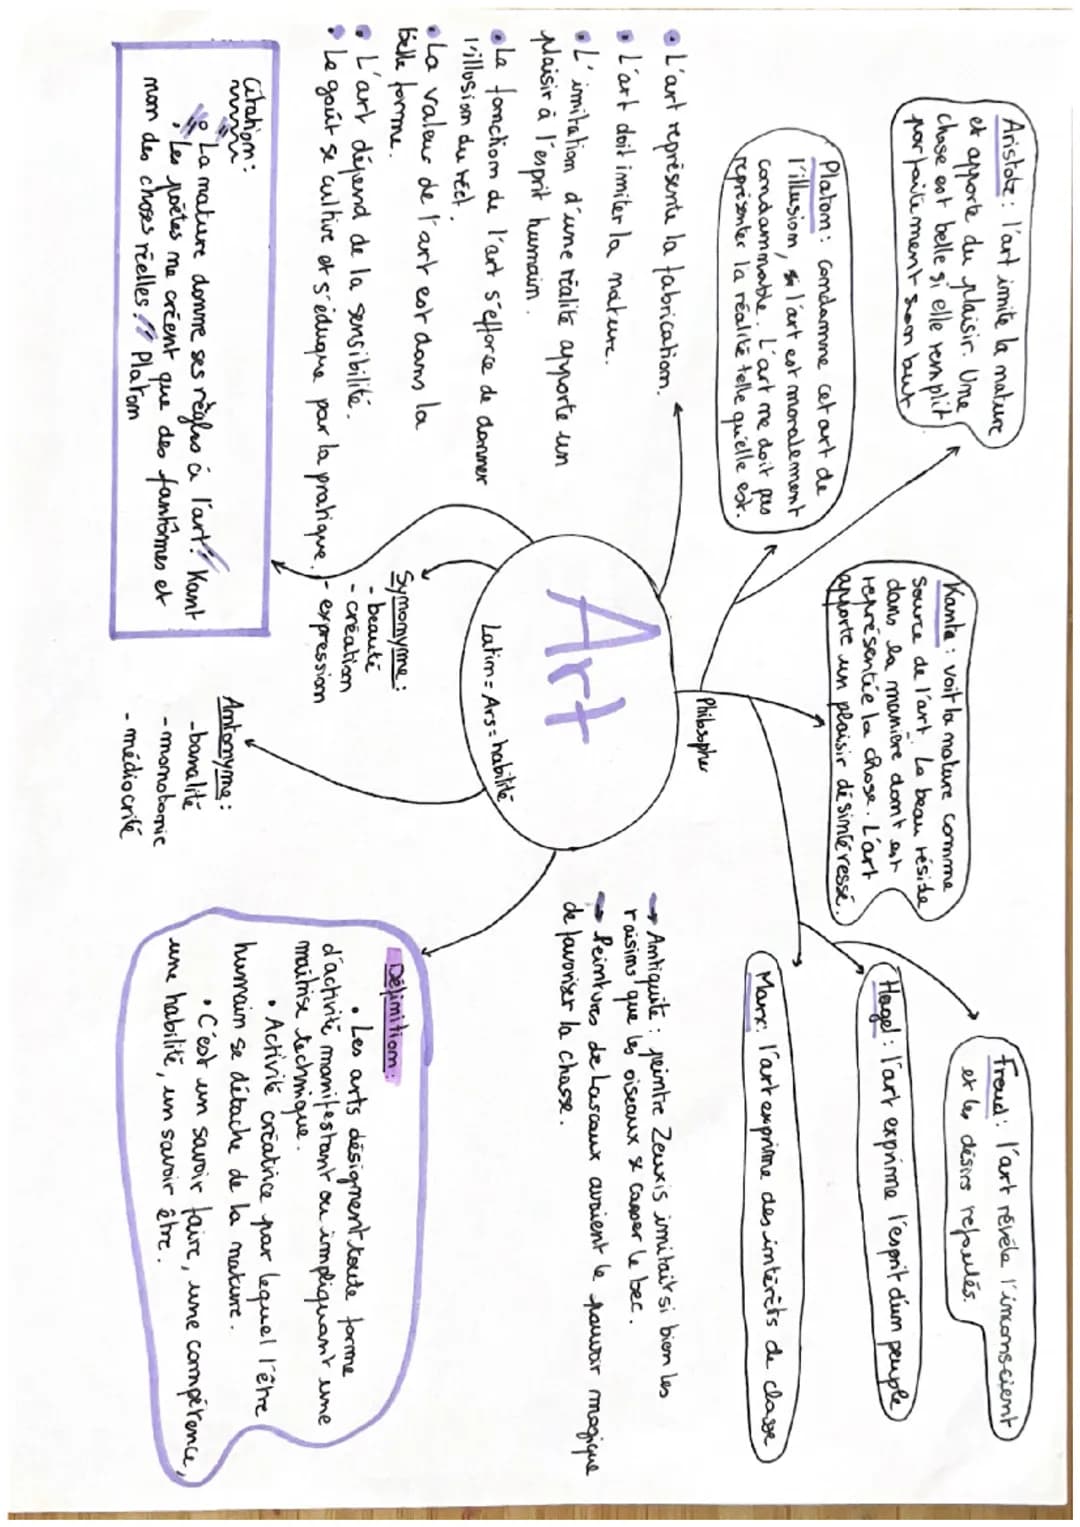 Aristote : l'art imite la nature
et apporte du plaisir. Une
chose est belle si elle remplit
parfaitement son but
Platon : condamne cet art de
l'illusion, si l'art est moralement
condamnable. L'art ne doit pas
représenter la réalité telle qu'elle est.
Kante : voit la nature comme
source de l'art. Le beau réside
dans la manière dont est
représentée la chose. L'art
apporte un plaisir désintéressé.
Freud : l'art révèle l'inconscient
et les désirs refoulés.
Hegel : l'art exprime l'esprit d'un peuple
Marx : l'art exprime des intérêts de classe
Philosophe
• L'art représente la fabrication.
• L'art doit imiter la nature.
• L'imitation d'une réalité apporte un
plaisir à l'esprit humain.
• La fonction de l'art s'efforce de donner
l'illusion du réel.
• La valeur de l'art est dans la
belle forme.
• L'art dépend de la sensibilité.
• Le goût se cultive et s'éduque par la pratique.
Art
Latin = Ars = habilité
→ Antiquité : peintre Zeuxis imitait si bien les
raisins que les oiseaux se casser le bec.
→ Peintures de Lascaux avaient le pouvoir magique
de favoriser la chasse.
Synonyme :
- beauté
- création
- expression
Antonyme :
- banalité
- monotomie
- médiocrité
Citation :
" La nature donne ses règles à l'art." Kant
" Les poètes ne créent que des fantômes et
non des choses réelles." Platon
Définition :
• Les arts désignent toute forme
d'activité manifestant ou impliquant une
maitrise technique.
• Activité créatrice par lequel l'être
humain se détache de la nature.
• C'est un savoir faire, une compétence,
une habilité, un savoir être.